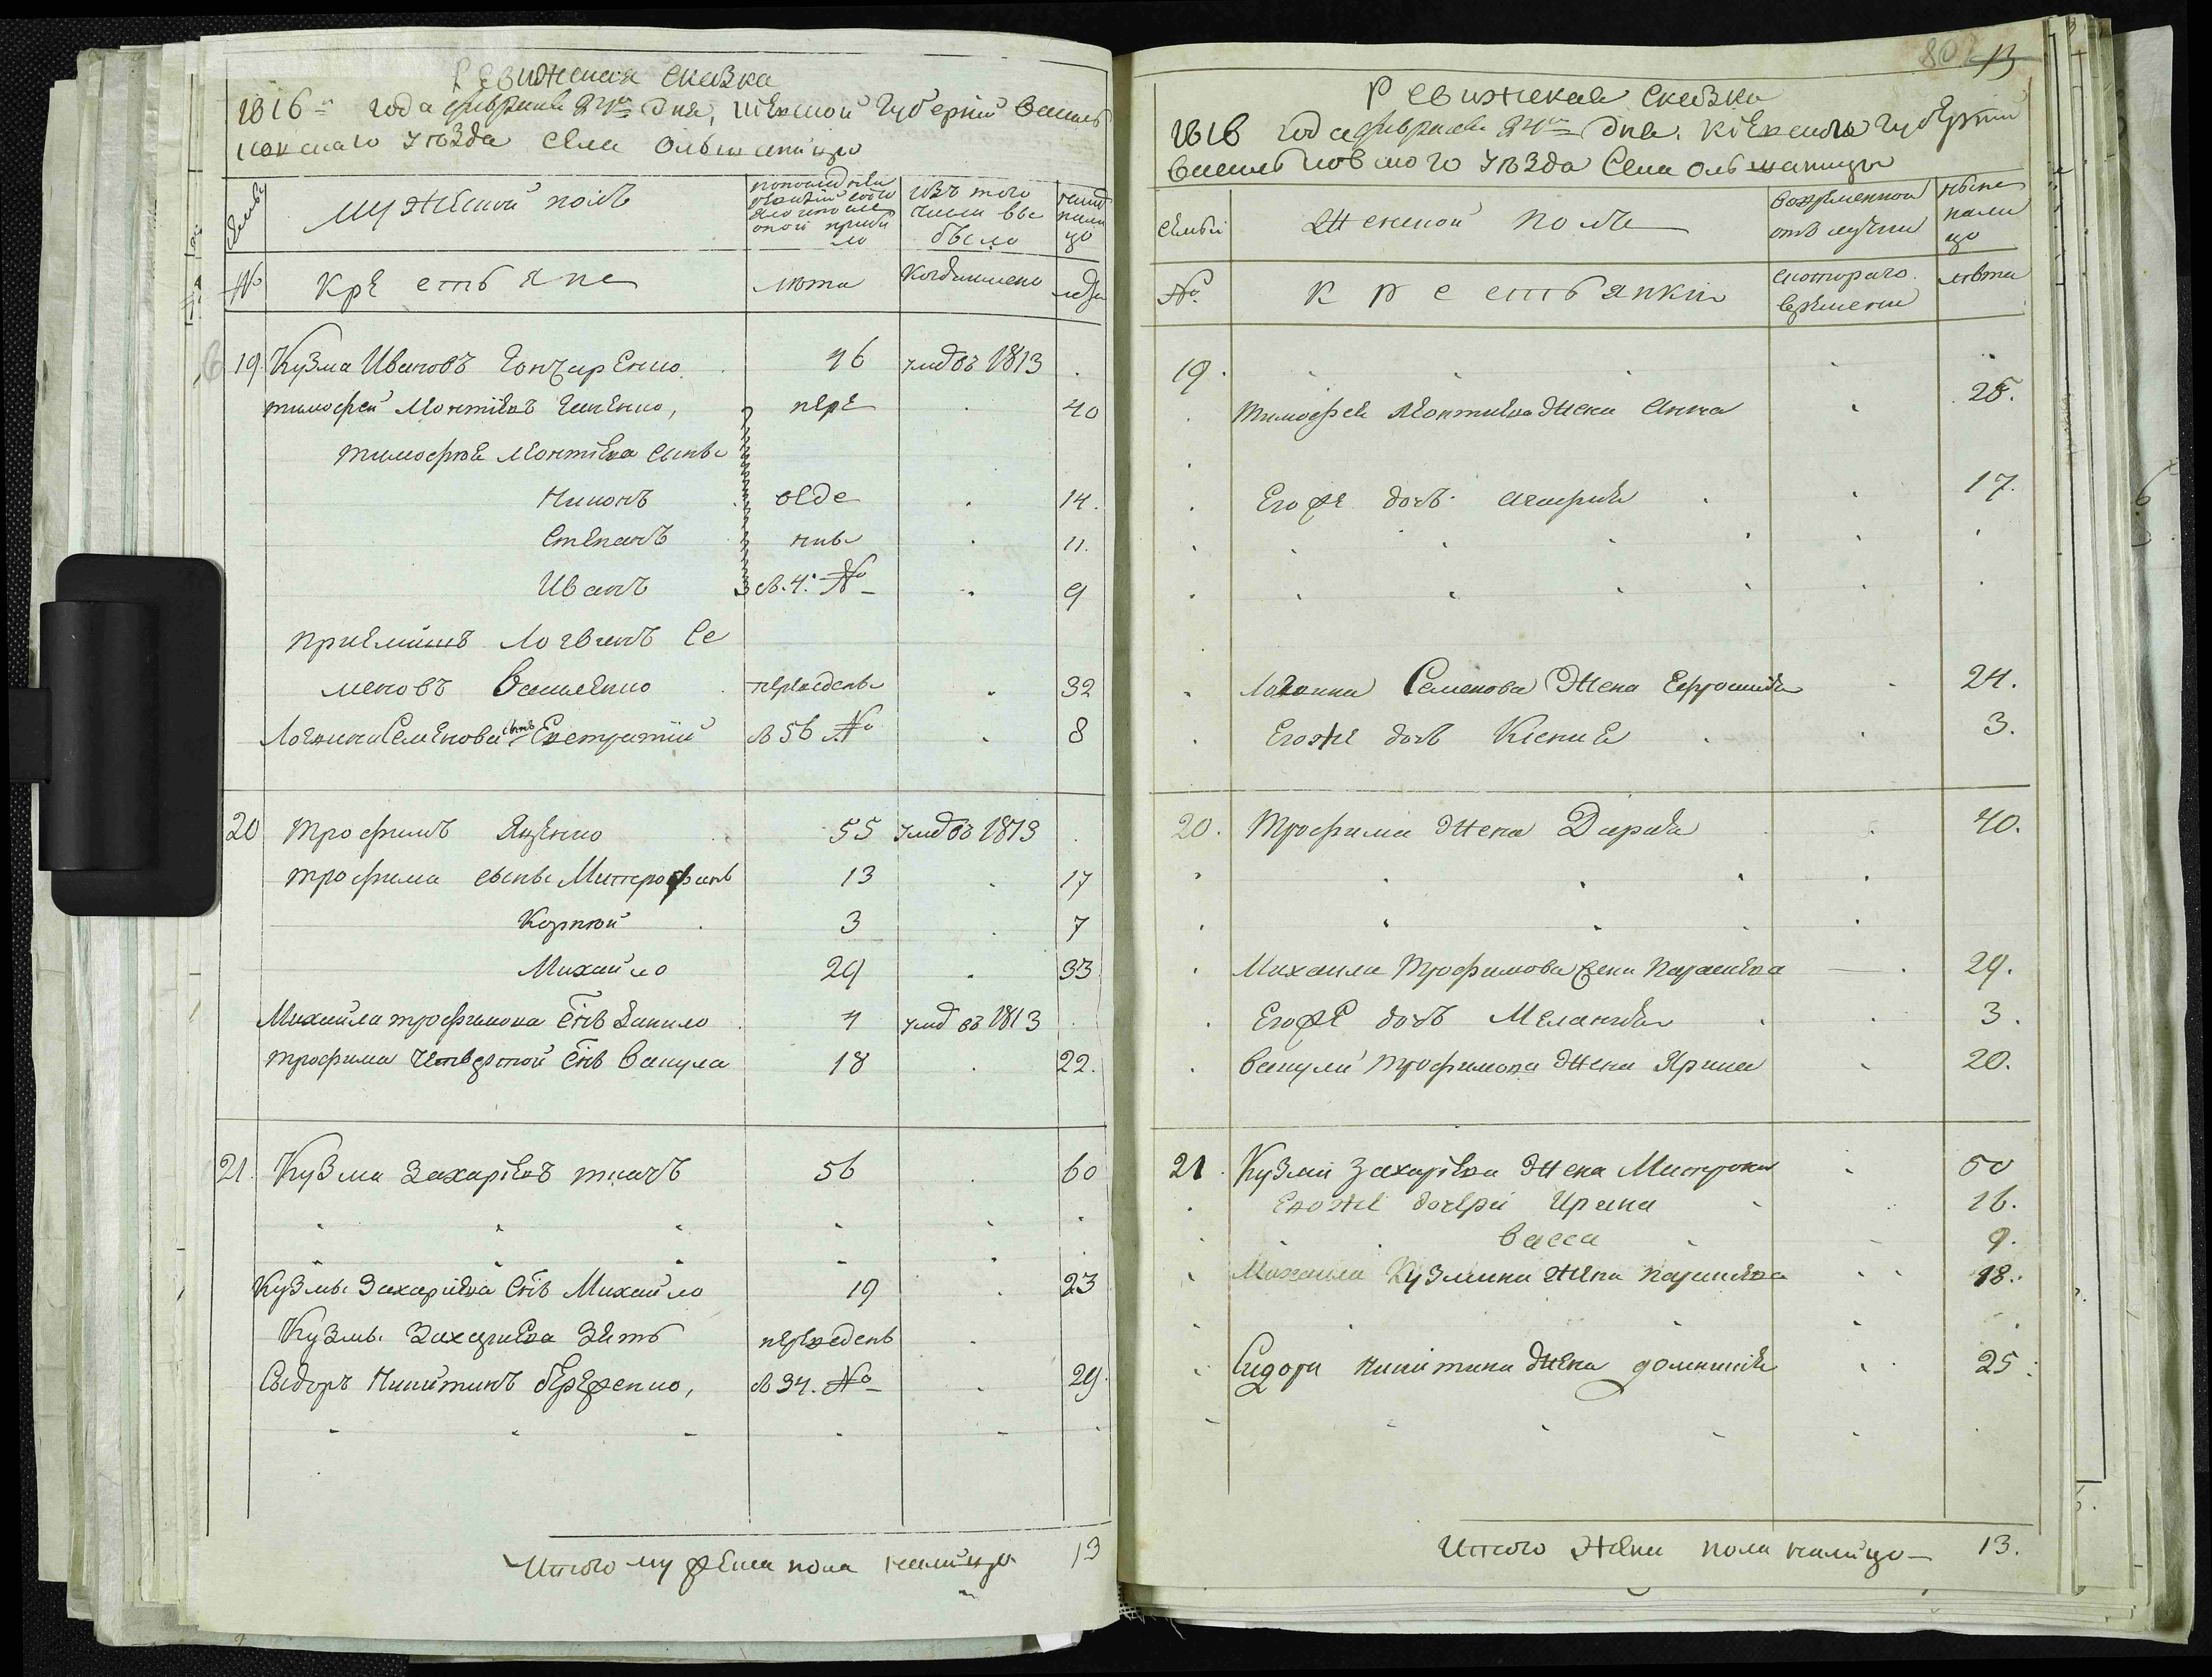 Ревижская сказка
1816 года февраля дня, Кіевской Губерніи Василь
ковскаго уѣзда села Ольшаницы
Семьи
мужеской полъ
изъ того числа выбыло
нынѣ налицо
№
Крестьяне
лета
Когда именно
лета
19 Кузма Ивановъ Гончаренко 46 умер въ 1813
тимофей Леонтіевъ 40
тимофея Леонтіева сыны пере
Никонъ веде 14.
Степанъ ны 11.
Иванъ с 4. № 9
приемышъ Логвинъ Се
меновъ Василенко переведены 32
Логвина Семенова сынъ Евстратій с 56 № 8
20 Трофимъ Яценко 55 умер въ 1813
трофима сыны Митрофанъ 13 17
Корнѣй 3 7
Михайло 29 33
Михайла трофимова снъ Данило 4 умер въ 1813
трофима четвертой снъ Вакула 18 22.
21. Кузма Захаріевъ ткачъ 56 60
Кузмы Захаріева снъ Михайло 19 23
Кузмы Захаріева зять переведенъ
Сыдоръ Никитинъ Береженко, с 34. № 29
Итого мужеска пола налицо 13
802 13
Ревижская Сказка
1816 года февраля дня. Кіевской Губерніи
Васильковского уѣзда Села Ольшаницы
Семьи
Женской полъ
во временной отлучки
нынѣ налицо
№
Крестьянки
с котораго времени
лѣта
19.
Тимофея Леонтиева жена Анна 28.
Его же дочь Агафия 17.
Логвина Семенова жена Ефросиния 24.
Его же дочь Ксения 3.
20. Трофима жена Дария 40.
Михаила Трофимова жена Параскева 29.
Его же дочь Мелания 3.
Вакулы Трофимова жена Ярина 20.
21. Кузмы Захаріева жена Митрона 50
Его же дочери Ирина 16.
Васса 9.
Михаила Кузмина жена Параскева 18.
Сидора Никитина жена Домникия 25.
Итого Женска пола налицо 13.